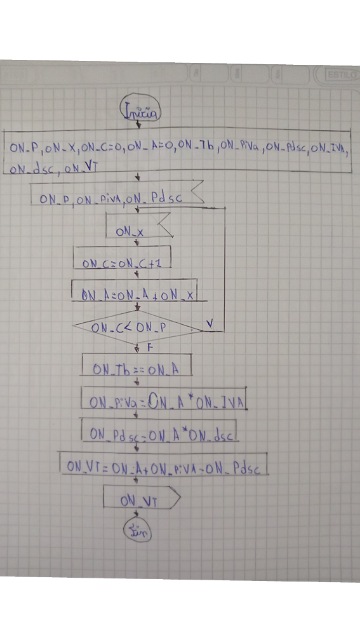 Inicia
ON_P, ON_X, ON_C=0, ON_A=0, ON_Tb, ON_PiVa, ON_Pdsc, ON_IVA,
ON_dsc, ON_VT
ON_P, ON_PiVA, ON_Pdsc
ON_X
ON_C=ON_C+1
ON_A=ON_A+ON_X
ON_C<ON_P
V
F
ON_Tb==ON_A
ON_PiVa=ON_A*ON_IVA
ON_Pdsc=ON_A*ON_dsc
ON_VT=ON_A+ON_PiVA-ON_Pdsc
ON_VT
Fin